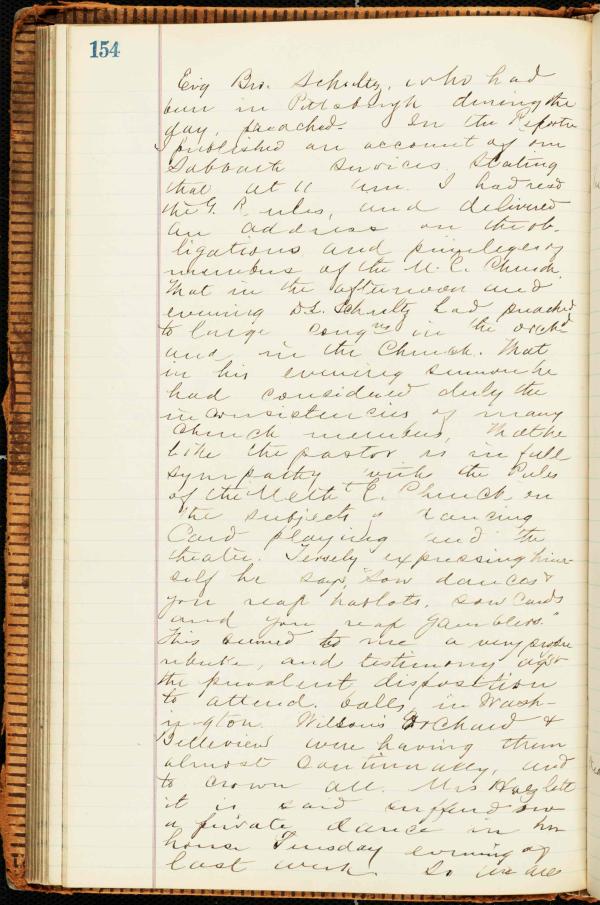 154
Evg Bro. Schultz, who had
been in Pittsburgh during the
day, preached. In the Reporter
I published an account of our
Sabbath services, stating
that at 11 am. I had read
the G. Rules, and delivered
an address on the ob-
ligations and privileges of
members of the M. E. Church.
That in the afternoon and
evening Dr. Schultz had preached
to large congns in the orchd
and in the Church. That
in his evening sermon he
had considered duly the
inconsistencies of many
Church members, that he
like the pastor is in full
sympathy with the Rules
of the Meth E. Church, on
the subjects of dancing
Card playing and the
theatre. Tersely expressing him-
self he says, "Sow dances &
you reap harlots, sow Cards
and you reap gamblers."
This seemed to me a very
rebuke, and testimony agst
the prevalent disposition
to attend balls, in Wash-
ington. Wilson's Orchard &
Belleview were having them
almost continually, and
to crown all, Mrs Hazlett
it is said
a private dance in her
house Tuesday evening of
last week. So we are